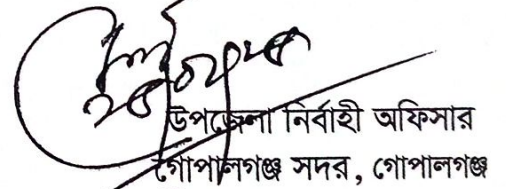 উপজেলা নির্বাহী অফিসার
গোপালগঞ্জ সদর, গোপালগঞ্জ